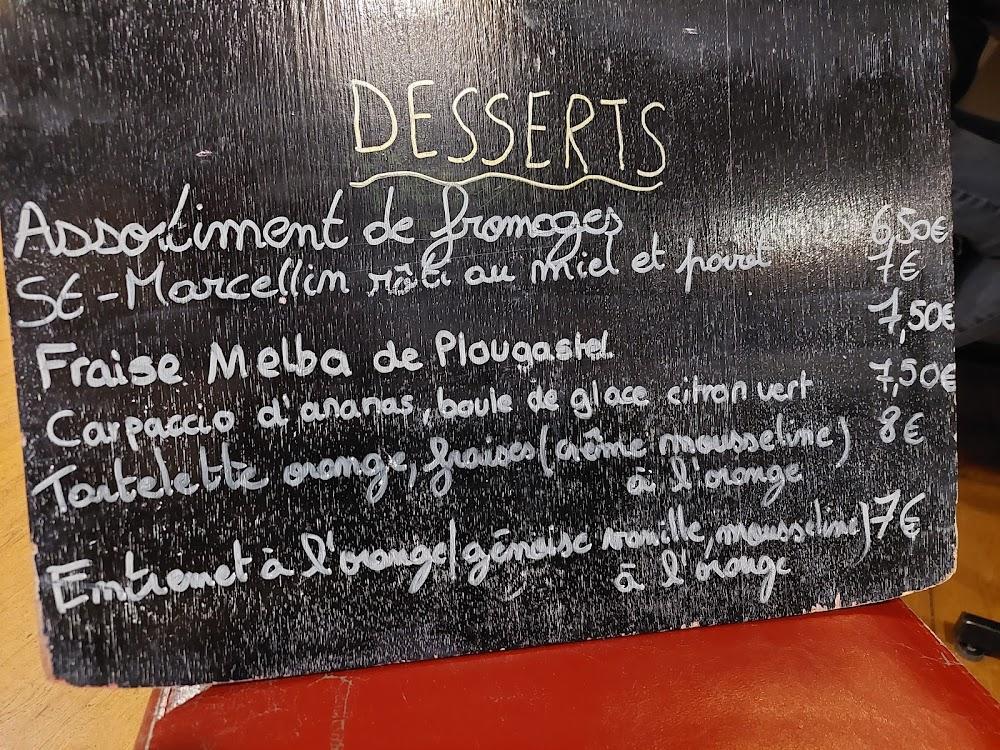 DESSERTS
Assortiment de fromages 6,50€
St-Marcellin rôti au miel et pavot 7€
Fraise Melba de Plougastel 7,50€
Carpaccio d'ananas, boule de glace citron vert 7,50€
Tartelette orange, fraises (crème mousseline) 8€
à l'orange
Entremet à l'orange (génoise vanille, mousseline) 7€
à l'orange